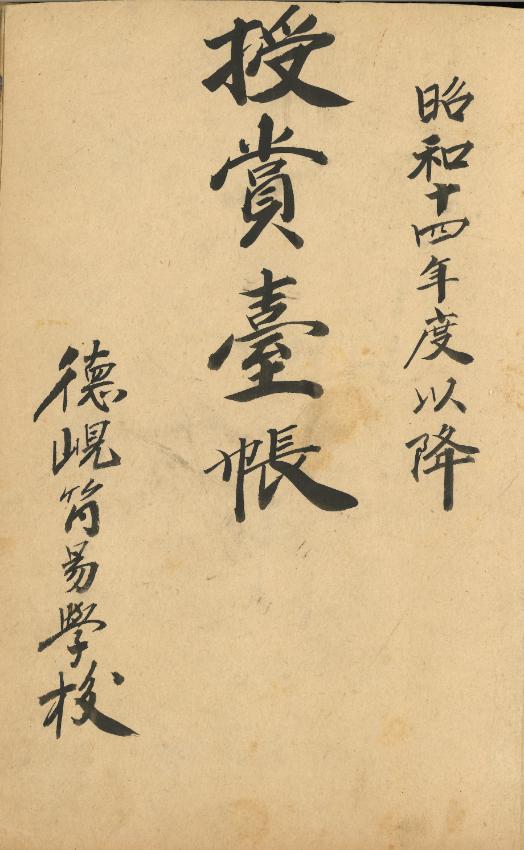 昭和十四年度以降
授賞臺帳
德峴簡易學校